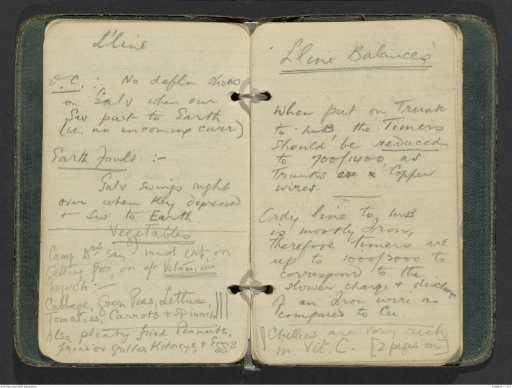 L'line
O.C. :- No defln shows
on Galv when our
Sw put to Earth
(i.e. no incoming curr)
Earth Fault :-
Galv swings right
over when key depressed
& Sw to Earth
Vegetables
Camp Drs say must eat, on
getting free, on a/c Vitamins
much :-
Cabbage, Green Peas, Lettuce
Tomatoes, Carrots & Spinach
Also plenty fried Peanuts,
fried or grilled Kidneys & Eggs
'Lline Balances'
When put on Trunk
to the Timers
should be reduced
to 700/1000, as
Trunks are Copper
wires.
Ordy line to
is mostly Iron,
therefore Timers are
up to 1000/2000 to
correspond to the
slower charge & discharge
of an Iron wire as
compared to Cu.
Chillies are very rich
in Vit. C. [2 pages on]